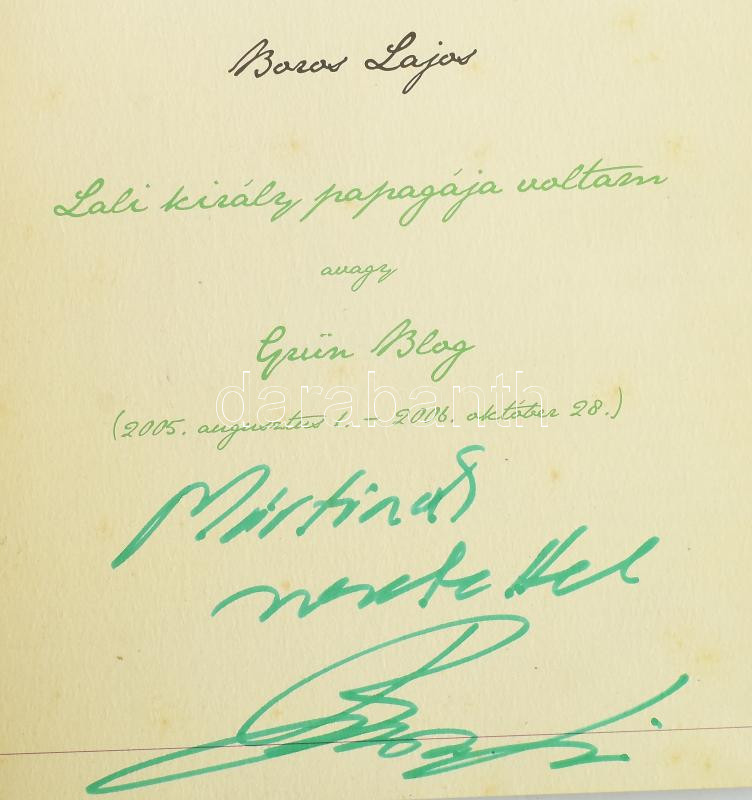 Boros Lajos
Lali király papagája voltam
avagy
Grün Blog
(2005. augusztus 1. – 2006. október 28.)
darabanth
Mártinak
szeretettel